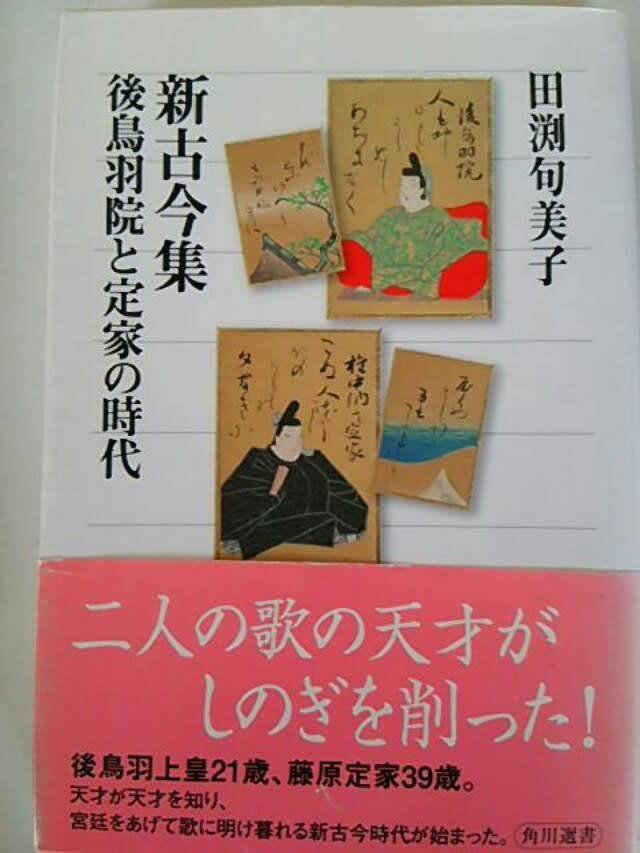 田渕句美子
新古今集
後鳥羽院と定家の時代
後鳥羽院
人も
権中納言定家
こぬ人を
二人の歌の天才が
しのぎを削った!
後鳥羽上皇21歳、藤原定家39歳。
天才が天才を知り、
宮廷をあげて歌に明け暮れる新古今時代が始まった。
角川選書